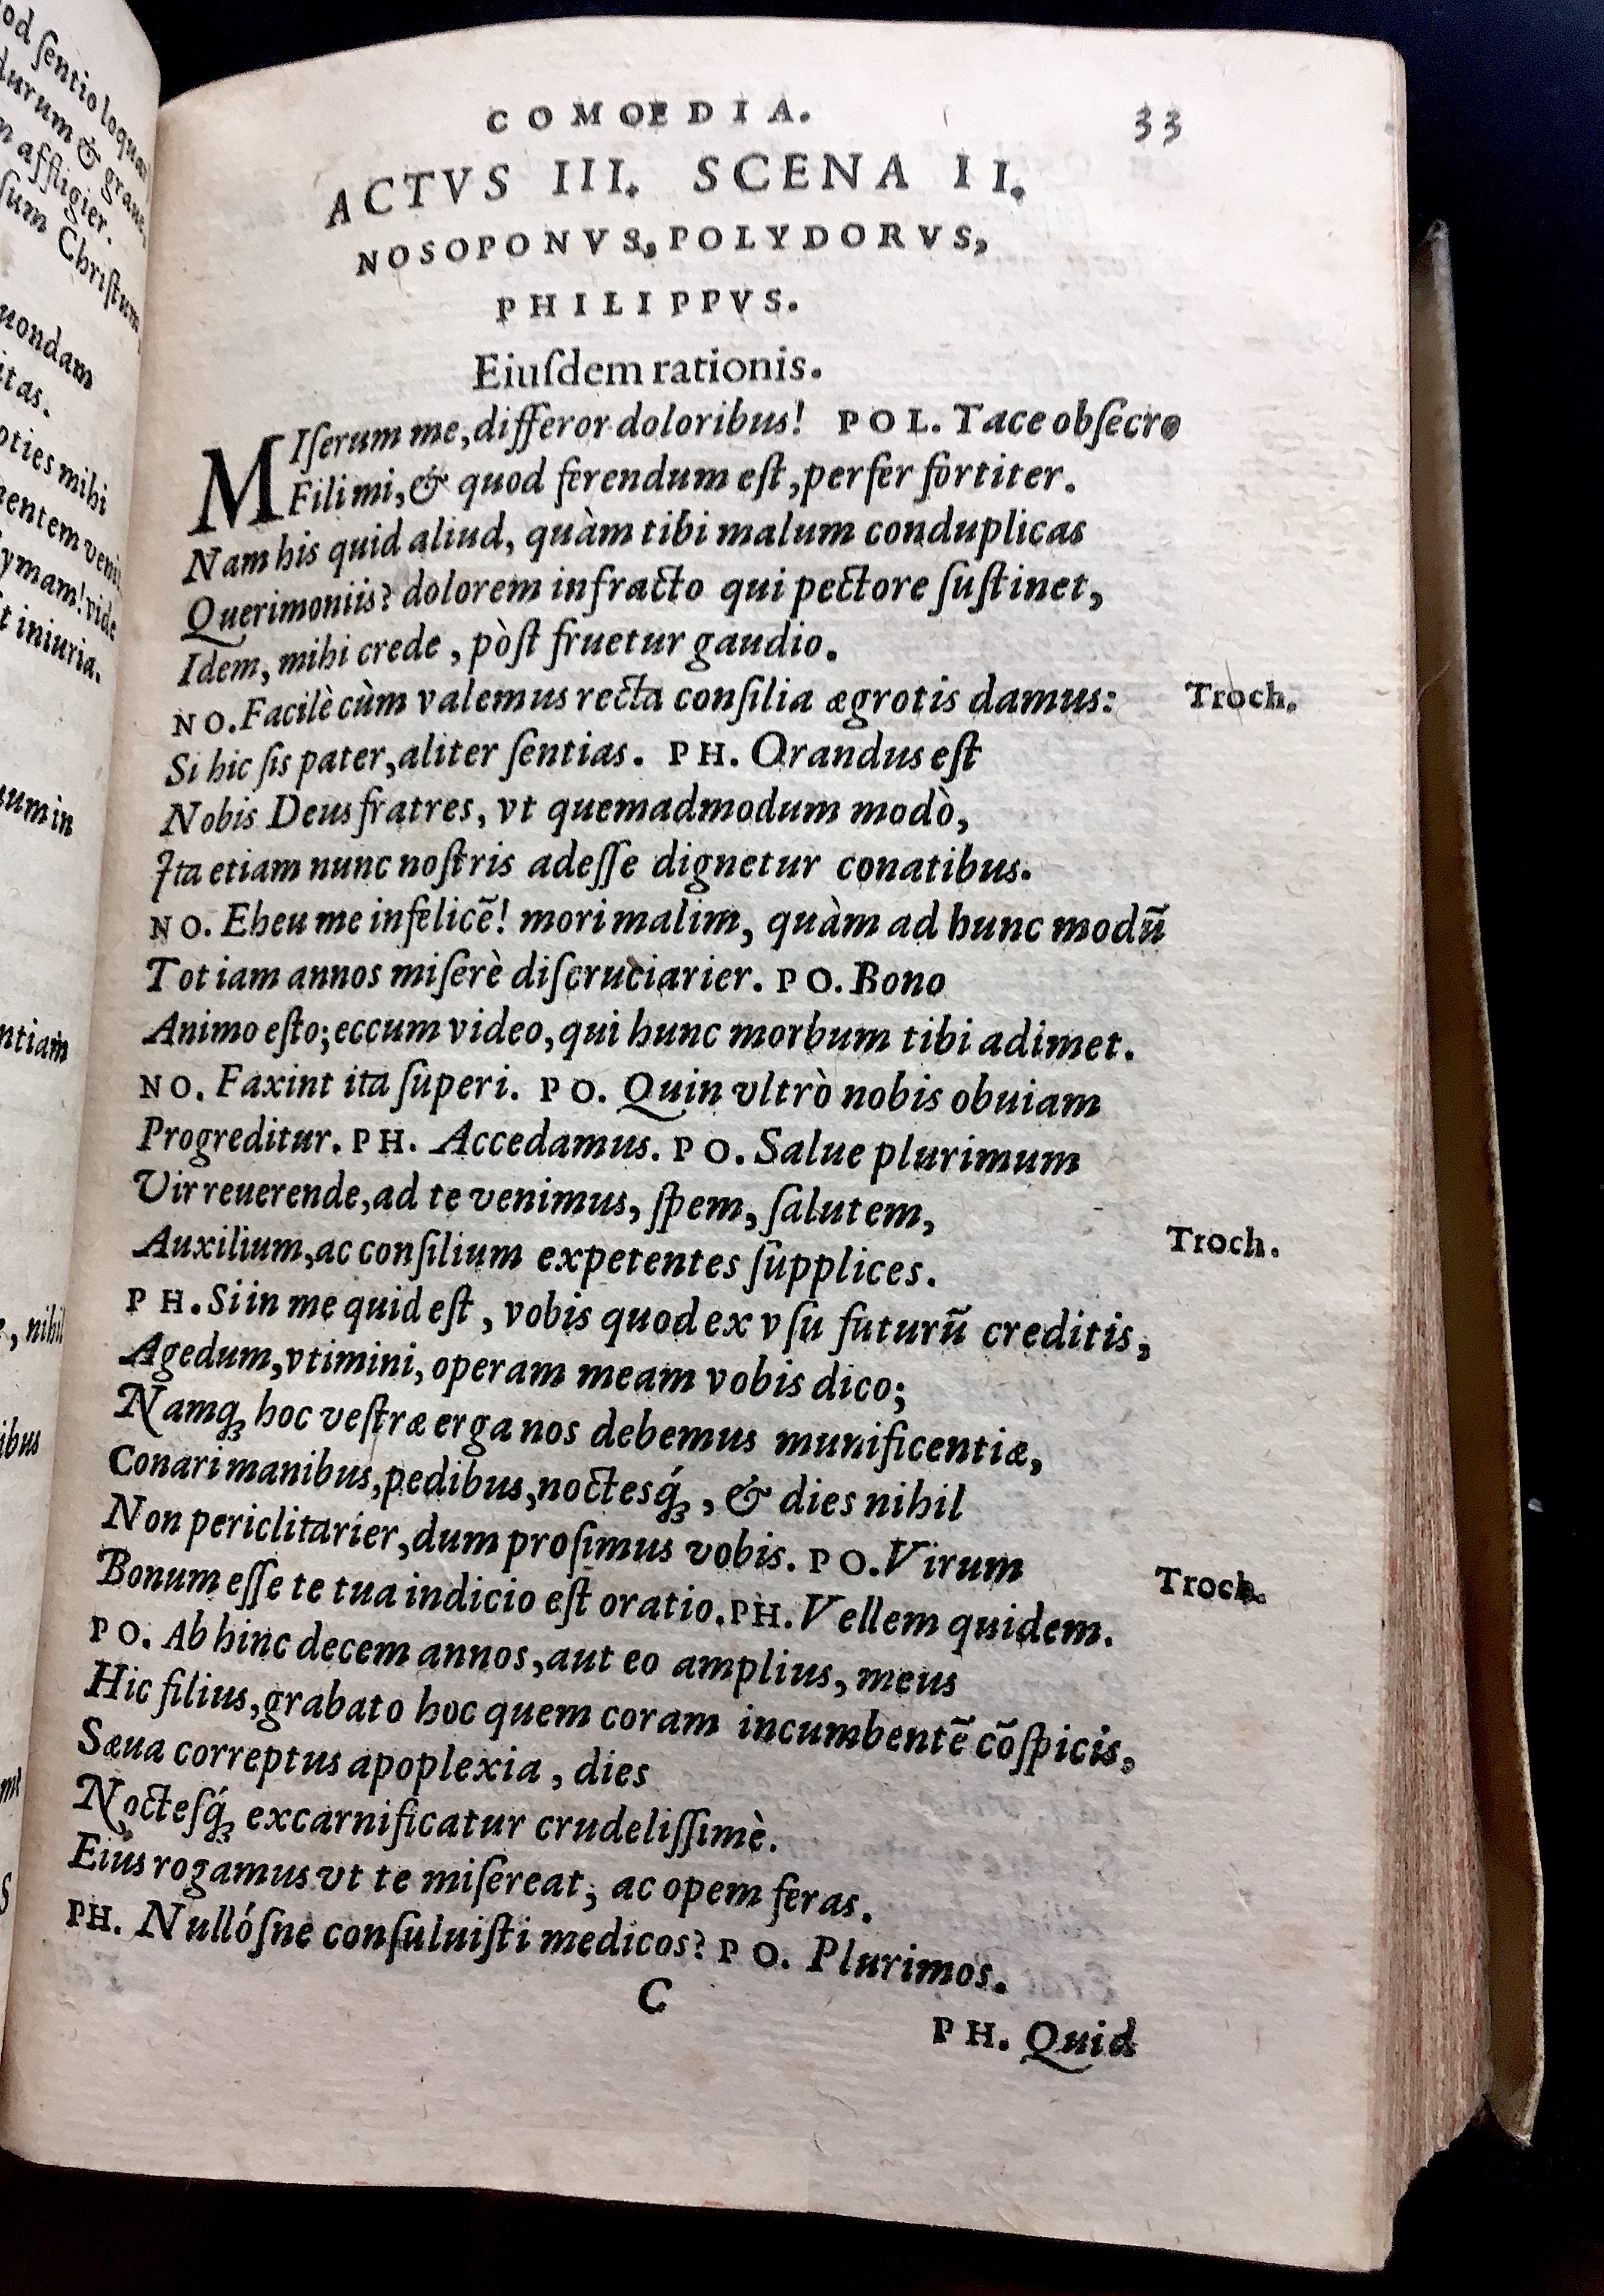 od ſentio loquar
durum & graue,
n affligier.
ſum Chriſtum
uondam
itas.
oties mihi
entem veni
ymam! vide
t iniuria.
sum in
ntiam
e, nihil
ibus
COMOEDIA. 33
ACTVS III. SCENA II.
NOSOPONVS, POLYDORVS,
PHILIPPVS.
Eiuſdem rationis.
MIſerum me, differor doloribus! POL. Tace obſecro
Fili mi, & quod ferendum eſt, perfer fortiter.
Nam his quid aliud, quàm tibi malum conduplicas
Querimoniis? dolorem infracto qui pectore ſuſtinet,
Idem, mihi crede, pòſt fruetur gaudio.
NO. Facilè cùm valemus recta conſilia ægrotis damus: Troch.
Si hic ſis pater, aliter ſentias. PH. Orandus eſt
Nobis Deus fratres, vt quemadmodum modò,
Ita etiam nunc noſtris adeſſe dignetur conatibus.
NO. Eheu me infelicē! mori malim, quàm ad hunc modū
Tot iam annos miſerè diſcruciarier. PO. Bono
Animo eſto; eccum video, qui hunc morbum tibi adimet.
NO. Faxint ita ſuperi. PO. Quin vltrò nobis obuiam
Progreditur. PH. Accedamus. PO. Salue plurimum
Vir reuerende, ad te venimus, ſpem, ſalutem,
Auxilium, ac conſilium expetentes ſupplices. Troch.
PH. Si in me quid eſt, vobis quod ex vſu futurū creditis,
Agedum, vtimini, operam meam vobis dico;
Namq́ꝫ hoc veſtræ erga nos debemus munificentiæ,
Conari manibus, pedibus, noctesq́ꝫ, & dies nihil
Non periclitarier, dum proſimus vobis. PO. Virum
Bonum eſſe te tua indicio eſt oratio. PH. Vellem quidem. Troch.
PO. Ab hinc decem annos, aut eo amplius, meus
Hic filius, grabato hoc quem coram incumbentē cōſpicis,
Sæua correptus apoplexia, dies
Noctesq́ꝫ excarnificatur crudeliſſimè.
Eius rogamus vt te miſereat, ac opem feras.
PH. Nullóſne conſuluiſti medicos? PO. Plurimos.
C
PH. Quid